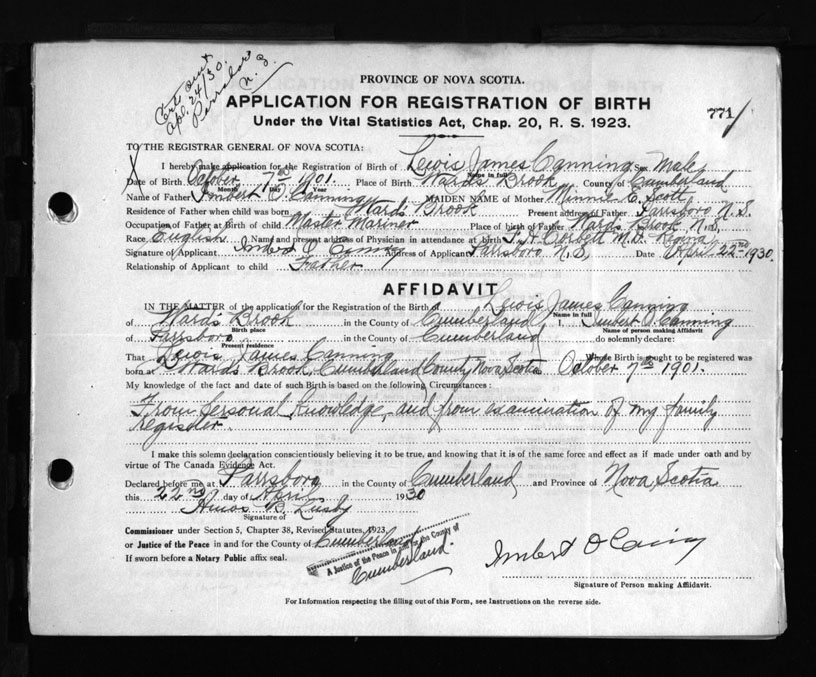 Certs sent
Apl. 24/30.
Parrsboro
N. S.
PROVINCE OF NOVA SCOTIA.
APPLICATION FOR REGISTRATION OF BIRTH
771
Under the Vital Statistics Act, Chap. 20, R. S. 1923.
TO THE REGISTRAR GENERAL OF NOVA SCOTIA:
I hereby make application for the Registration of Birth of Lewis James Canning Sex Male
Name in full
Date of Birth October 7th 1901. Place of Birth Wards Brook County of Cumberland
Month Day Year
Name of Father Imbert O. Canning MAIDEN NAME of Mother Minnie E. Scott
Residence of Father when child was born Wards Brook Present address of Father Parrsboro N. S.
Occupation of Father at Birth of child Master Mariner Place of birth of Father Wards Brook N.S,
Race English Name and present address of Physician in attendance at birth F. A Corbett M.D. Regina
Signature of Applicant Imbert O Canning Address of Applicant Parrsboro N. S, Date April 22nd 1930.
Relationship of Applicant to child Father
AFFIDAVIT
IN THE MATTER of the application for the Registration of the Birth of Lewis James Canning
Name in full
of Wards Brook in the County of Cumberland, I, Imbert O. Canning
Birth place Name of person making Affidavit
of Parrsboro in the County of Cumberland do solemnly declare:
Present residence
That Lewis James Canning Whose Birth is sought to be registered was
born at Wards Brook, Cumberland County, Nova Scotia October 7th 1901.
My knowledge of the fact and date of such Birth is based on the following Circumstances:
From personal knowledge, and from examination of my family
register.
I make this solemn declaration conscientiously believing it to be true, and knowing that it is of the same force and effect as if made under oath and by
virtue of The Canada Evidence Act.
Declared before me at Parrsboro in the County of Cumberland and Province of Nova Scotia
this 22nd day of April 1930
Amos B. Lusby
Signature of
Commissioner under Section 5, Chapter 38, Revised Statutes, 1923,
or Justice of the Peace in and for the County of Cumberland
A Justice of the Peace in and for the County of
Cumberland.
If sworn before a Notary Public affix seal.
Imbert O Canning
Signature of Person making Affidavit.
For Information respecting the filling out of this Form, see Instructions on the reverse side.